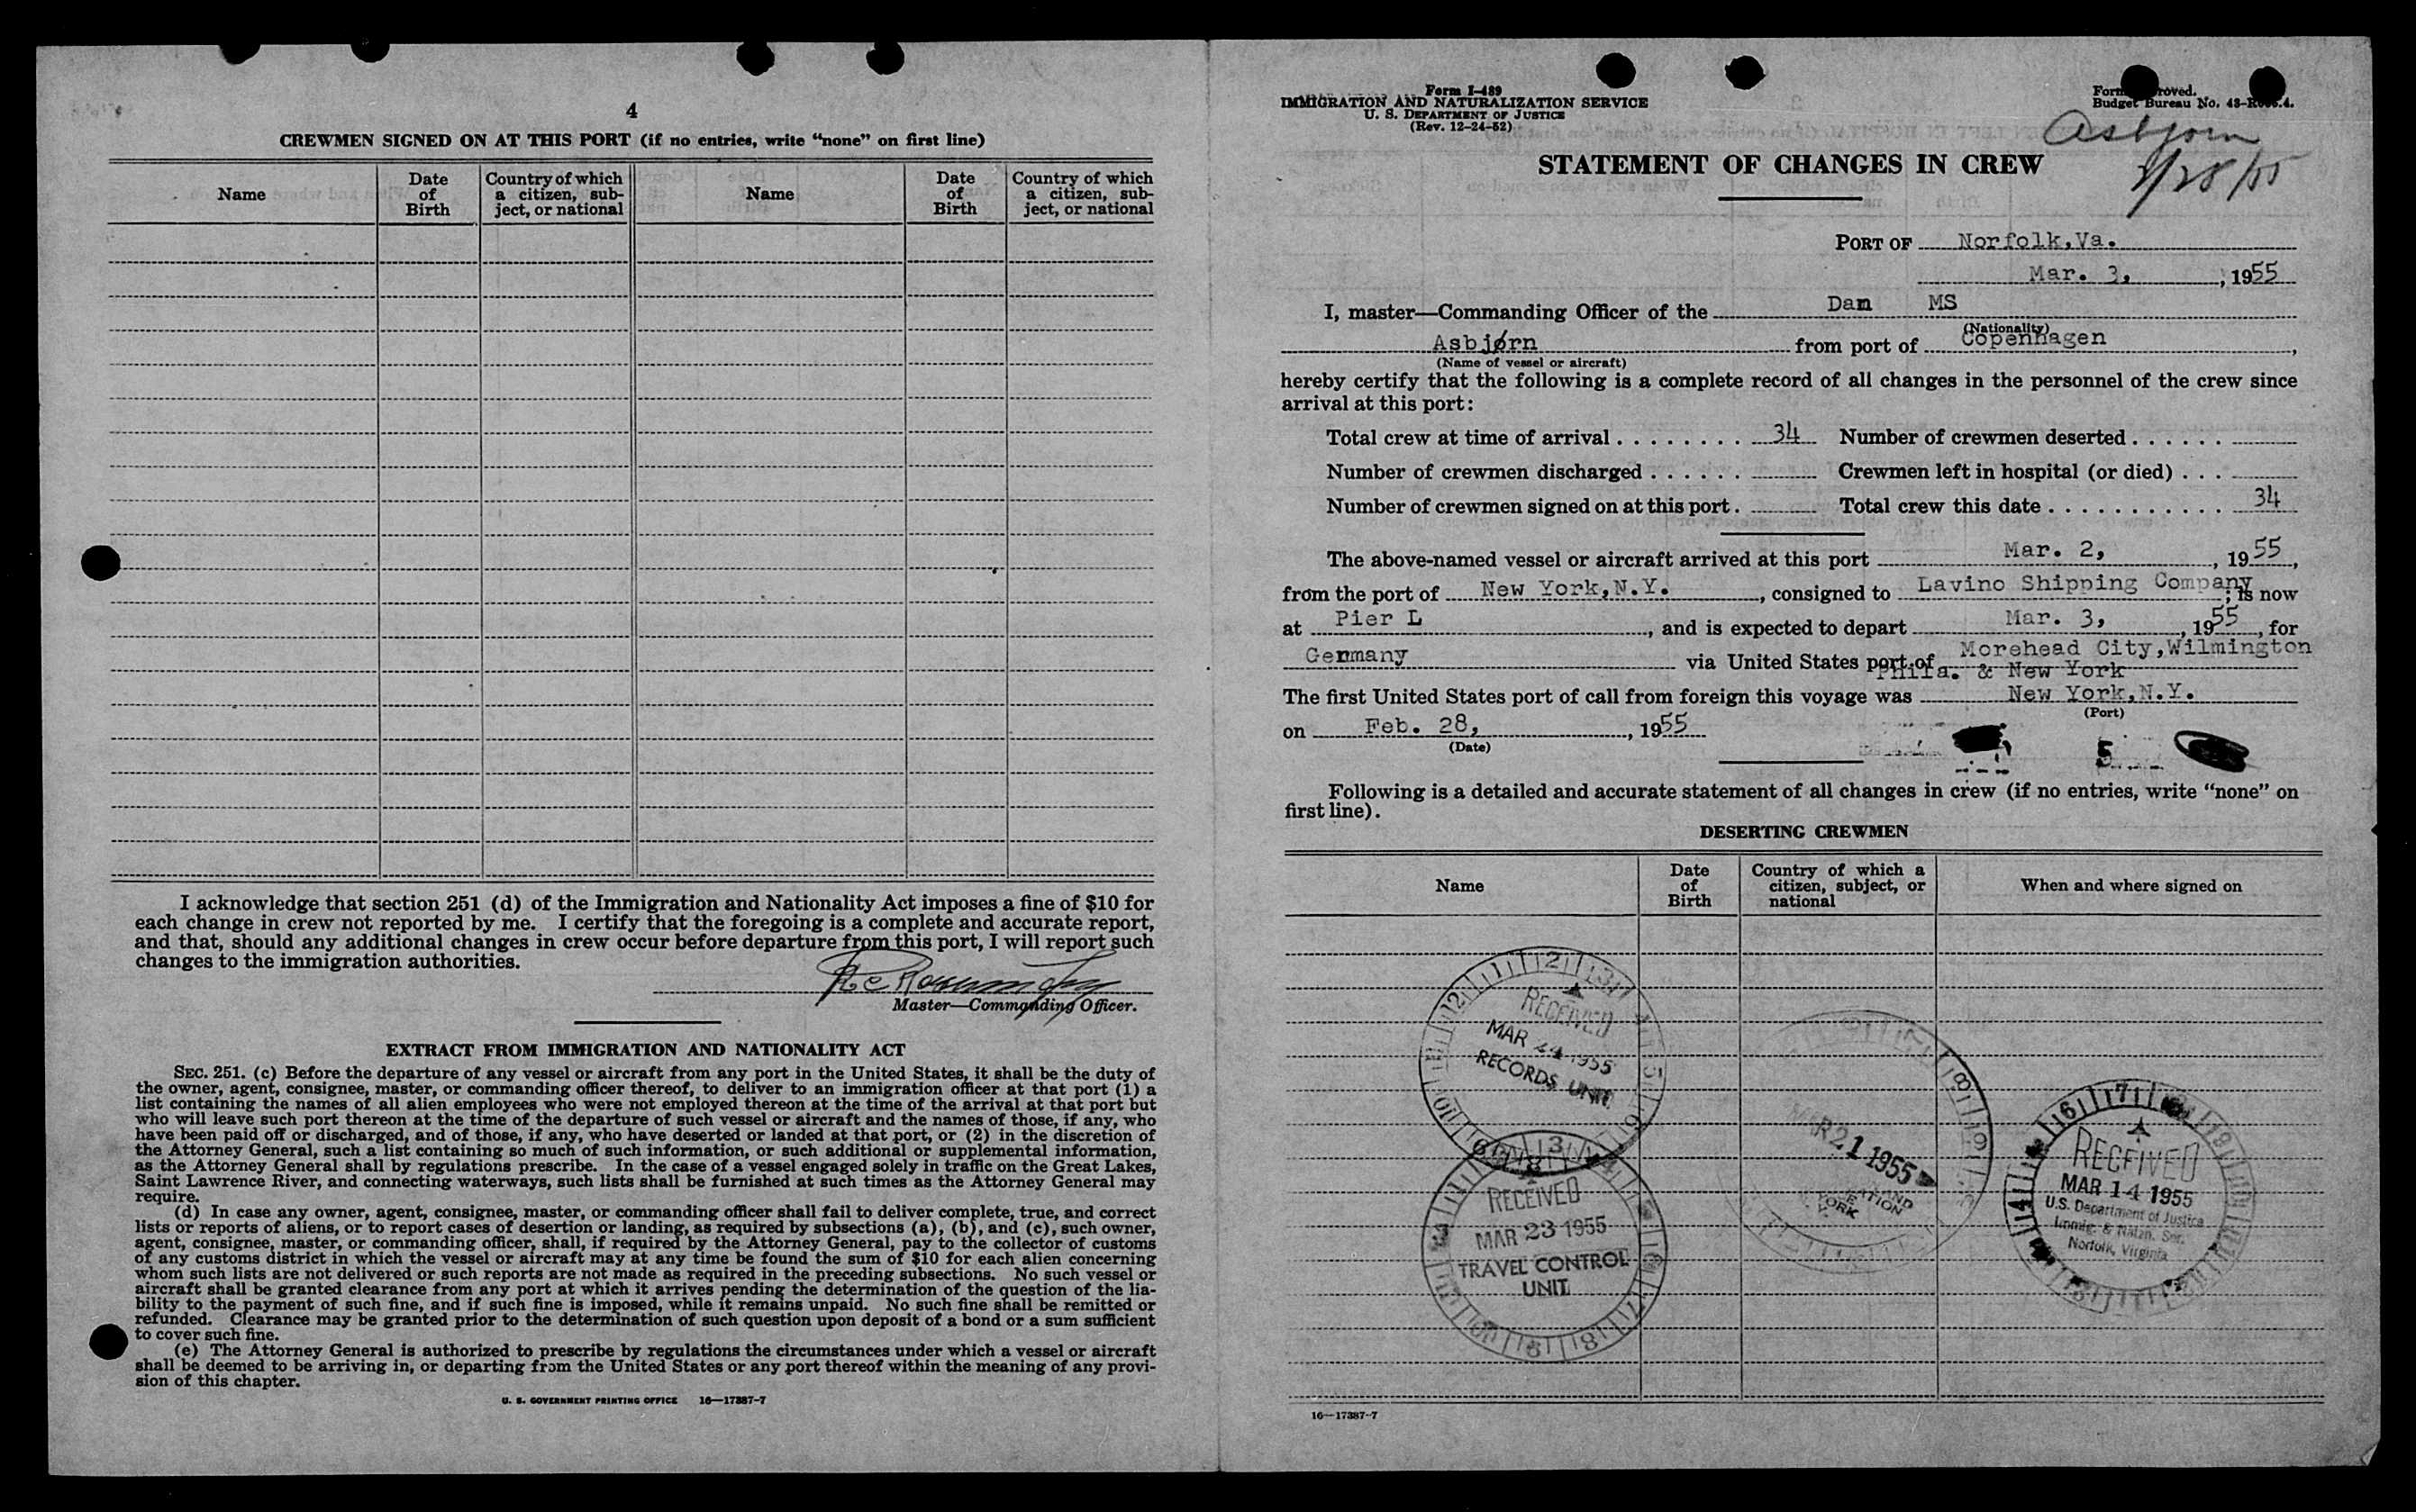 4
CREWMEN SIGNED ON AT THIS PORT (if no entries, write “none” on first line)
Name
Date of Birth
Country of which a citizen, sub-ject, or national
Name
Date of Birth
Country of which a citizen, sub-ject, or national
I acknowledge that section 251 (d) of the Immigration and Nationality Act imposes a fine of $10 for
each change in crew not reported by me. I certify that the foregoing is a complete and accurate report,
and that, should any additional changes in crew occur before departure from this port, I will report such
changes to the immigration authorities.
Master—Commanding Officer.
EXTRACT FROM IMMIGRATION AND NATIONALITY ACT
SEC. 251. (c) Before the departure of any vessel or aircraft from any port in the United States, it shall be the duty of
the owner, agent, consignee, master, or commanding officer thereof, to deliver to an immigration officer at that port (1) a
list containing the names of all alien employees who were not employed thereon at the time of the arrival at that port but
who will leave such port thereon at the time of the departure of such vessel or aircraft and the names of those, if any, who
have been paid off or discharged, and of those, if any, who have deserted or landed at that port, or (2) in the discretion of
the Attorney General, such a list containing so much of such information, or such additional or supplemental information,
as the Attorney General shall by regulations prescribe. In the case of a vessel engaged solely in traffic on the Great Lakes,
Saint Lawrence River, and connecting waterways, such lists shall be furnished at such times as the Attorney General may
require.
(d) In case any owner, agent, consignee, master, or commanding officer shall fail to deliver complete, true, and correct
lists or reports of aliens, or to report cases of desertion or landing, as required by subsections (a), (b), and (c), such owner,
agent, consignee, master, or commanding officer, shall, if required by the Attorney General, pay to the collector of customs
of any customs district in which the vessel or aircraft may at any time be found the sum of $10 for each alien concerning
whom such lists are not delivered or such reports are not made as required in the preceding subsections. No such vessel or
aircraft shall be granted clearance from any port at which it arrives pending the determination of the question of the lia-
bility to the payment of such fine, and if such fine is imposed, while it remains unpaid. No such fine shall be remitted or
refunded. Clearance may be granted prior to the determination of such question upon deposit of a bond or a sum sufficient
to cover such fine.
(e) The Attorney General is authorized to prescribe by regulations the circumstances under which a vessel or aircraft
shall be deemed to be arriving in, or departing from the United States or any port thereof within the meaning of any provi-
sion of this chapter.
U. S. GOVERNMENT PRINTING OFFICE 16—17387-7
Form I-489
IMMIGRATION AND NATURALIZATION SERVICE
U. S. DEPARTMENT OF JUSTICE
(Rev. 12-24-52)
Budget Bureau No.
Asbjorn
2/28/55
STATEMENT OF CHANGES IN CREW
PORT OF Norfolk,Va.
Mar. 3, , 1955
I, master—Commanding Officer of the Dan MS
(Nationality)
Asbjørn from port of Copenhagen,
(Name of vessel or aircraft)
hereby certify that the following is a complete record of all changes in the personnel of the crew since
arrival at this port:
Total crew at time of arrival . . . . . . . . 34 Number of crewmen deserted . . . . . .
Number of crewmen discharged . . . . . . Crewmen left in hospital (or died) . . .
Number of crewmen signed on at this port . Total crew this date . . . . . . . . . . . 34
The above-named vessel or aircraft arrived at this port Mar. 2, , 1955,
from the port of New York,N.Y. , consigned to Lavino Shipping Company; is now
at Pier L , and is expected to depart Mar. 3, , 1955, for
Germany via United States port of Morehead City,Wilmington
Phila. & New York
The first United States port of call from foreign this voyage was New York,N.Y.
(Port)
on Feb. 28, , 1955
(Date)
5
Following is a detailed and accurate statement of all changes in crew (if no entries, write “none” on
first line).
DESERTING CREWMEN
Name
Date of Birth
Country of which a citizen, subject, or national
When and where signed on
RECEIVED
MAR 24 1955
RECORDS UNIT
MAR 21 1955
RECEIVED
MAR 14 1955
U.S. Department of Justice
Immig. & Natzn. Ser.
Norfolk, Virginia
RECEIVED
MAR 23 1955
TRAVEL CONTROL
UNIT
16—17387-7